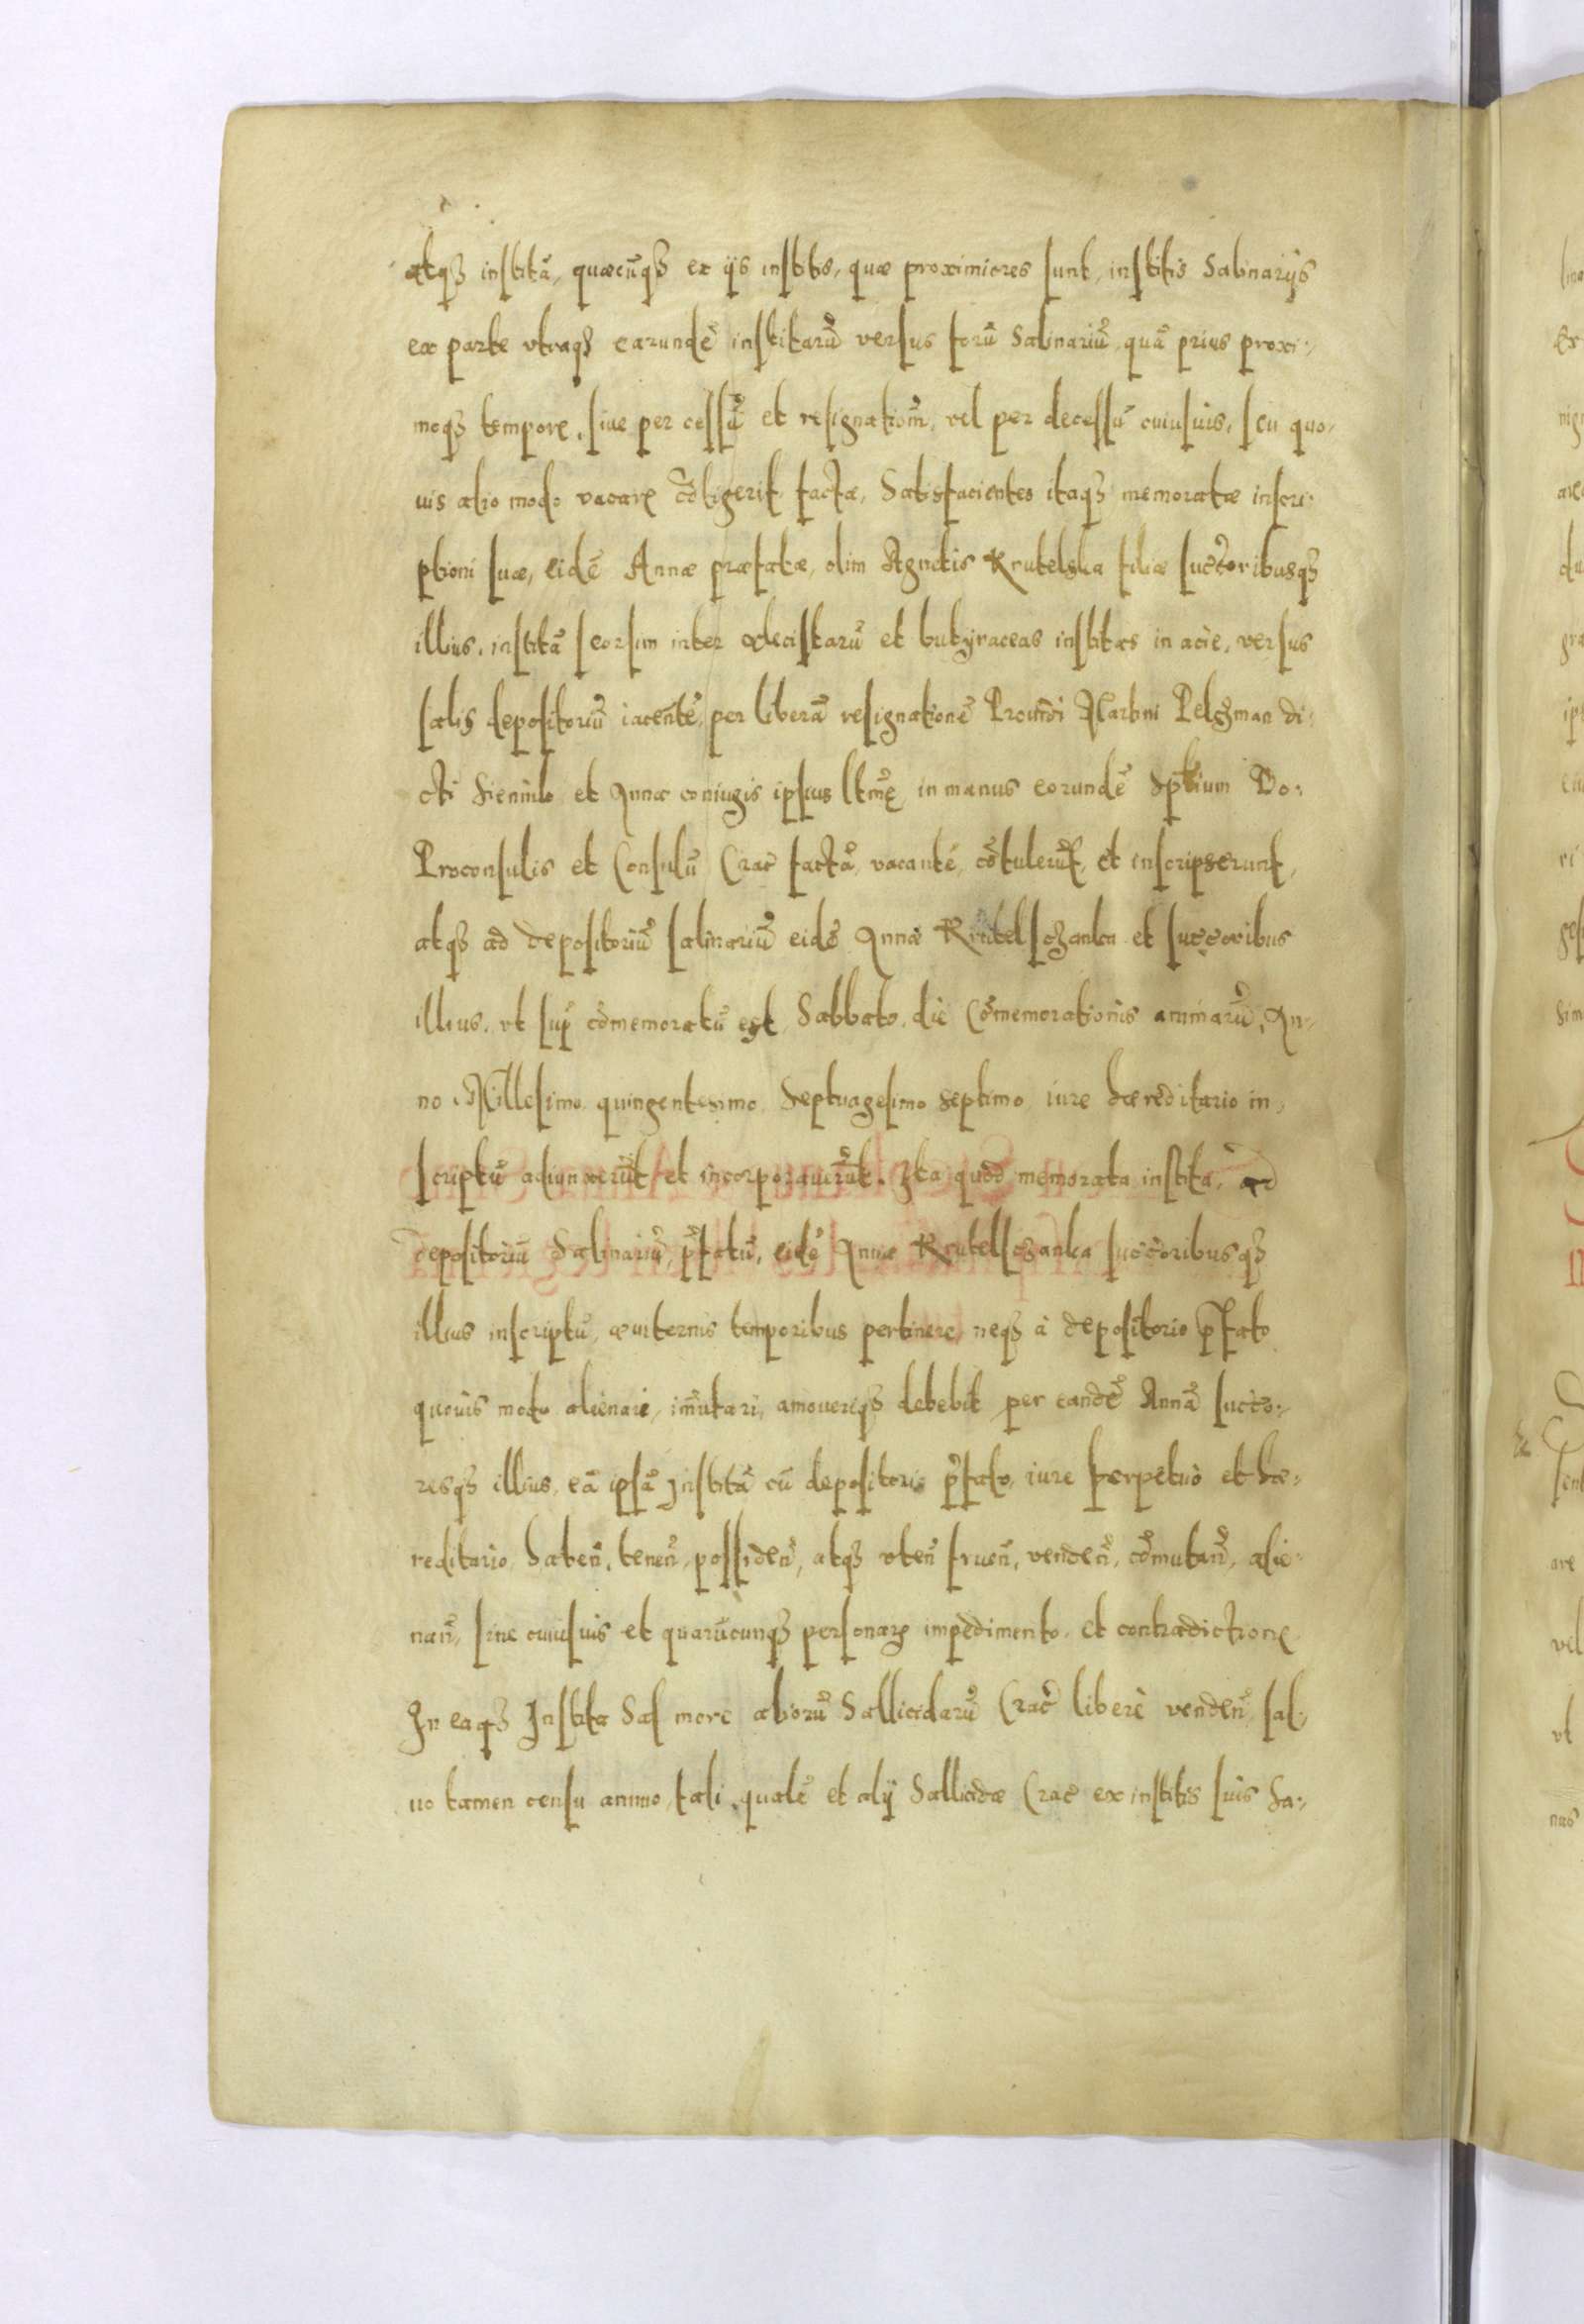 atqȝ institā, quæcūqȝ ex ijs institis, quæ proximiores sunt, institis Salinarijs
ex parte vtraqȝ earundē institarū versus forū Salinariū, quā prius proxi-
moqȝ tempore, siue per cessū et resignationē, vel per decessū cuiusuis, seu quo-
uis alio modo vacare cōtigerit, factæ, Satisfacientes itaqȝ memoratæ inscri-
ptioni suæ, eidē Annæ præfatæ, olim Agnetis Krutelska filiæ succ̄oribusqȝ
illius, institā seorsim inter et butyraceas institas in acie, versus
salis depositoriū iacentē, per liberā resignationē Prouidi Martini Pelczman di-
cti et Annæ coniugis ipsius ltmæ, in manus eorundē Sptium Do:
Proconsulis et Consulū Crac̄ factā, vacantē, cōtulerūt, et inscripserunt,
atqȝ ad depositoriū salinariū eidē Annæ Krutelschanka et succ̄oribus
illius, vt sup̄ cōmemoratū est, Sabbato, die Cōmemorationis animarū, An-
no Millesimo quingentesimo Septuagesimo septimo iure hæreditario in-
scriptū adiunxerūt et incorporauerūt. Ita quòd memorata instita, ad
depositoriū Salinariū, p̄fatū, eidē Annæ Krutelschanka succ̄oribusqȝ
illius inscriptū, æuiternis temporibus pertinere, neqȝ à depositorio p̄fato
quouis modo alienari, im̄utari, amoueriqȝ debebit, per eandē Annā succ̄o-
resqȝ illius, eā ipsā Institā cū depositorio p̄fato, iure perpetuò et hæ-
reditario, haben̄, tenen̄, possiden̄, atqȝ vten̄ fruen̄, venden̄, cōmutan̄, alie-
nan̄, sine cuiusuis et quarūcunqȝ personarȝ impedimento, et contradictione
In eaqȝ Instita Sal more aliorū Sallicidarū Crac̄ liberè venden̄, sal-
uo tamen censu annuo, tali, qualē et alij Sallicidæ Crac̄ ex institis suis fa-